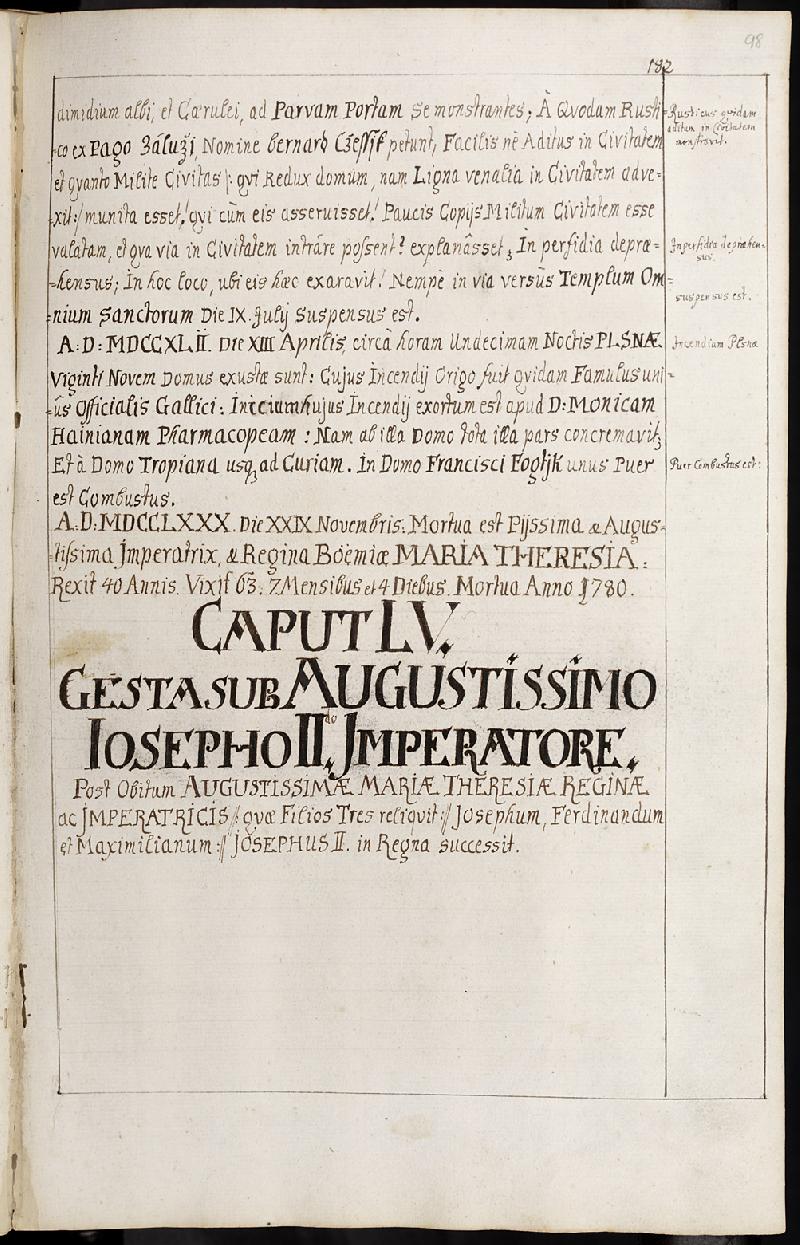 98
182
dimidium albi, et Cærulei, ad Parvam Portam se monstrantes; À Qvodam Rusti=
=co ex Pago Zaluži, Nomine bernard petunt, Facilis nè Aditus in Civitatem
et qvanto Milite Civitas /: qvi Redux domum, nam Ligna venalia in Civitatem adve=
=xit:/ munita esset! qvi cùm eis asseruisset! Paucis Copijs Militum Civitatem esse
valatam, et qva via in Civitatem intrare possent? explanâsset; In perfidia depræ=
=hensus; In hoc loco, ubi eis hæc exaravit! Nempè in via versùs Templum Om
=nium Sanctorum Die IX. July Suspensus est.
A: D: MDCCXLII. Die XIII Aprilis, circà horam Undecimam Noctis PLSNÆ
Viginti Novem Domus exustæ sunt: Cujus Incendij Origo fuit qvidam Famulus uni=
=ûs Officialis Gallici: hujus Incendij exortum est apud D: Monicam
Hainianam Pharmacopeam: Nam ab illa Domo tota illa pars concremavit;
Et à Domo Tropiana usq; ad Curiam. In Domo Francisci Fogtjk unus Puer
est Combustus.
A: D: MDCCLXXX. Die XXIX Novembris: Mortua est Pijssima & Augus=
=tissima Jmperatrix, & Regina Boëmiæ MARIA THERESIA:
Rexit 40 Annis. Vixit 63: 7 Mensibus et 4 Diebus. Mortua Anno 1780.
CAPUT LV.
GESTA SUB AUGUSTISSIMO
IOSEPHO II.do JMPERATORE.
Post Obitum AUGUSTISSIMÆ MARIÆ THERESIÆ REGINÆ
ac JMPERATRICIS /: qvæ Filios Tres reliqvit :/ Josephum, Ferdinandum
et Maximilianum :/ JOSEPHUS II. in Regna successit.
Rusticus qvidam
aditum in Civitatem
monstravit.
Jn perfidia deprehen=
sus.
suspensus est.
Jncendium Plsnæ
Puer Combustus est: